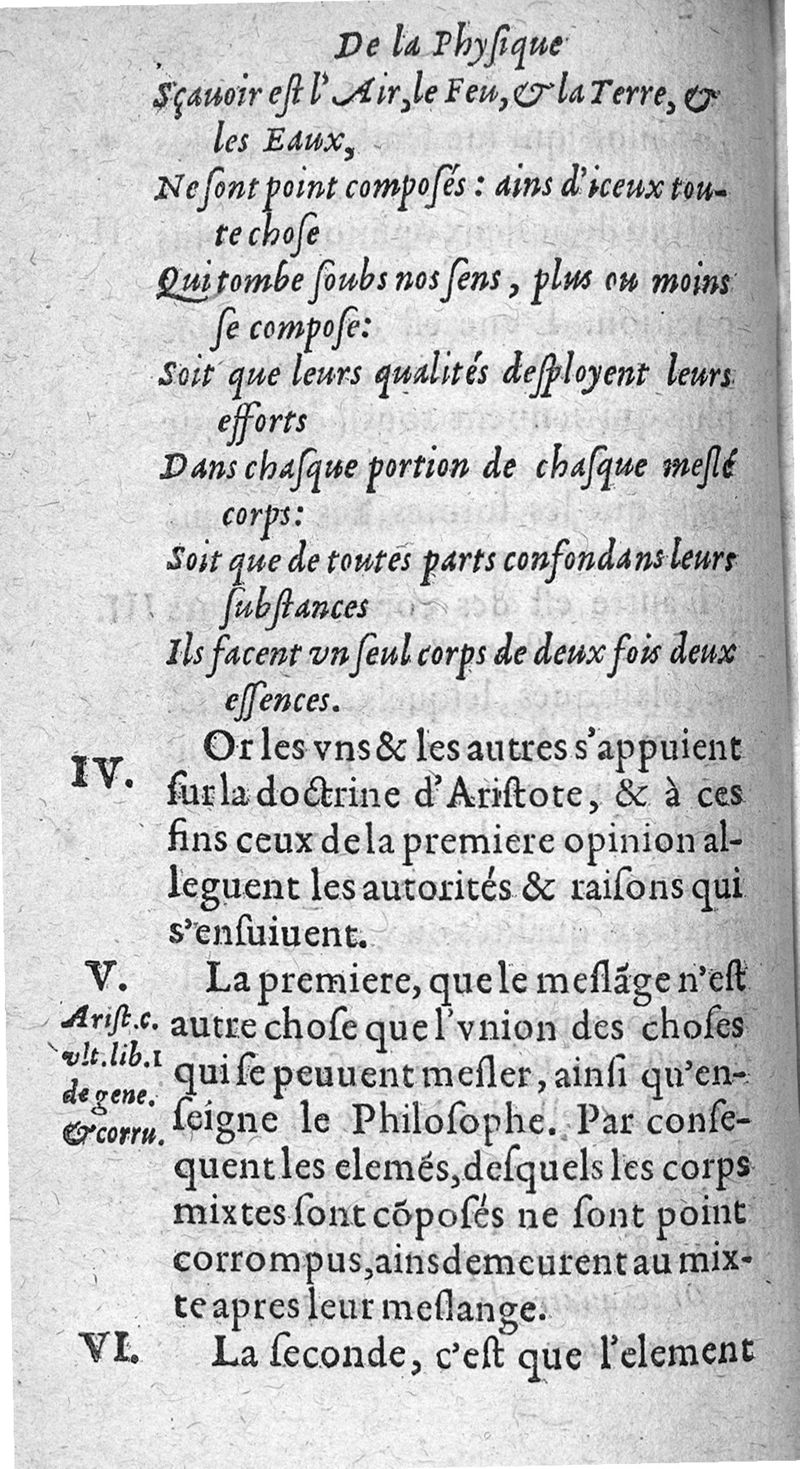 De la Phyſique
Sçauoir eſt l'Air, le Feu, & la Terre, &
les Eaux,
Ne ſont point compoſés : ains d'iceux tou-
te choſe
Qui tombe ſoubs nos ſens, plus ou moins
ſe compoſe:
Soit que leurs qualités deſployent leurs
efforts
Dans chaſque portion de chaſque meſlé
corps:
Soit que de toutes parts confondans leurs
ſubſtances
Ils facent vn ſeul corps de deux fois deux
eſſences.
IV. Or les vns & les autres s'appuient
ſur la doctrine d'Ariſtote, & à ces
fins ceux de la premiere opinion al-
leguent les autorités & raiſons qui
s'enſuiuent.
V. La premiere, que le meſlãge n'eſt
autre choſe que l'vnion des choſes
qui ſe peuuent meſler, ainſi qu'en-
ſeigne le Philoſophe. Par conſe-
quent les elemés, deſquels les corps
mixtes ſont cõpoſés ne ſont point
corrompus, ains demeurent au mix-
te apres leur meſlange.
Ariſt. c.
vlt. lib. 1
de gene.
& corru.
VI. La ſeconde, c'eſt que l'element